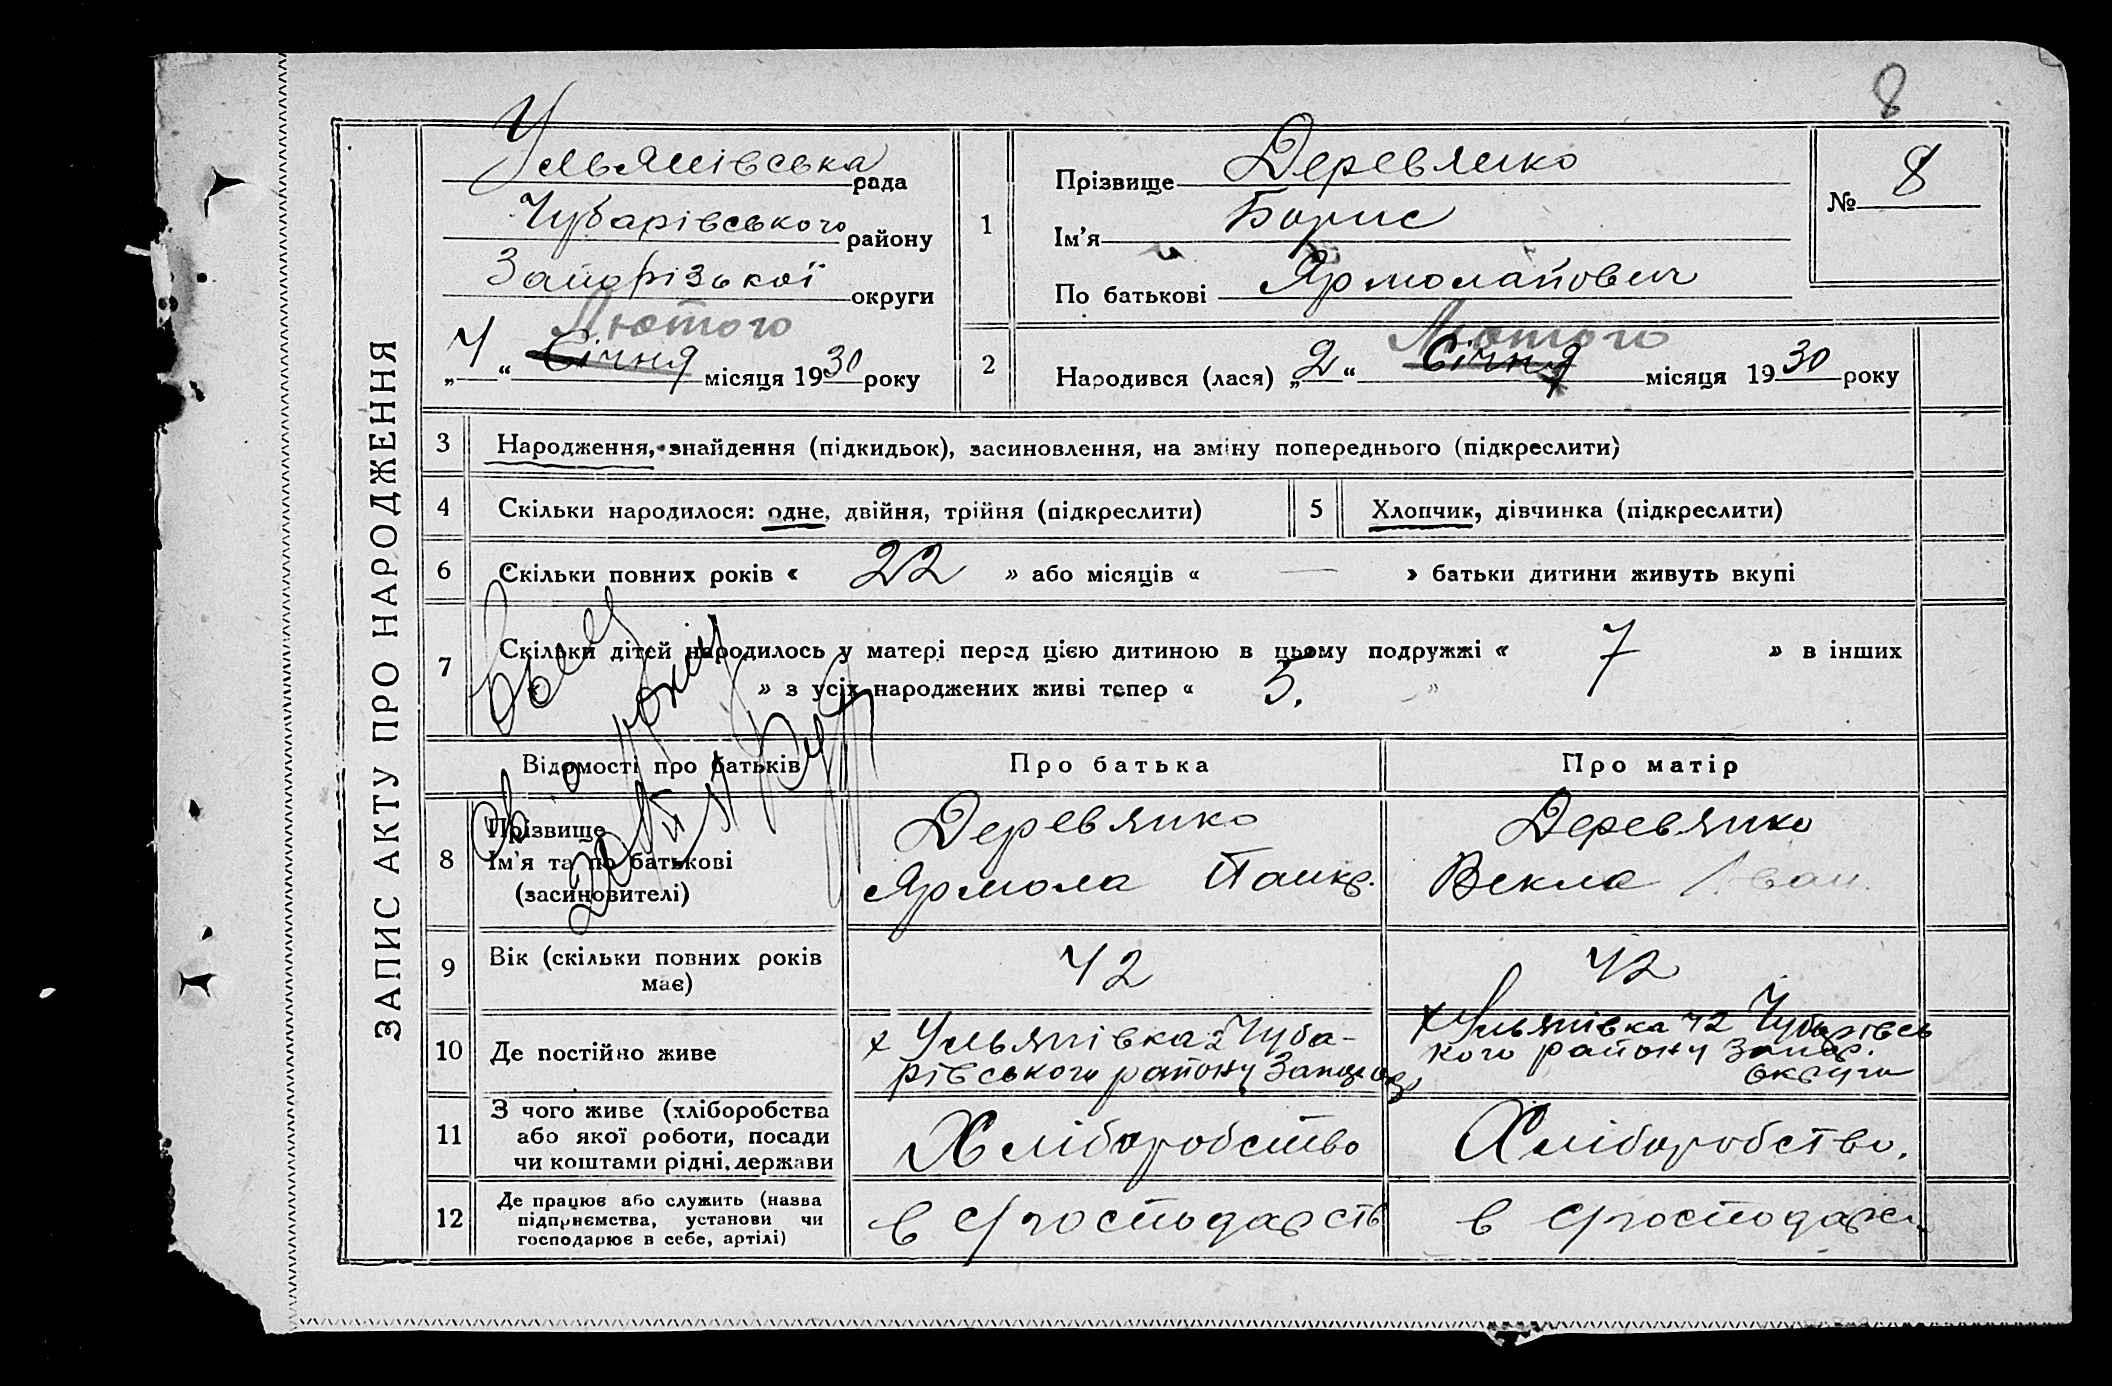 8
ЗАПИС АКТУ ПРО НАРОДЖЕННЯ
Ульянівська рада
Чубарівського району
Запорізької округи
Лютого
„4“ Січня місяця 1930 року
1
Прізвище Деревянко
Ім'я Борис
По батькові Ярмолайович
№ 8
2
Лютого
Народився (лася) „2“ Січня місяця 1930 року
3 Народження, знайдення (підкидьок), засиновлення, на зміну попереднього (підкреслити)
4 Скільки народилося: одне, двійня, трійня (підкреслити)
5 Хлопчик, дівчинка (підкреслити)
6 Скільки повних років « 22 » або місяців « — » батьки дитини живуть вкупі
7 Скільки дітей народилось у матері перед цією дитиною в цьому подружжі « 7 » в інших
« » з усіх народжених живі тепер « 5. »
Відомості про батьків
Про батька
Про матір
8 Прізвище
Ім'я та по батькові
(засиновителі)
Деревянко
Ярмола Панкр.
Деревянко
Векла Іван.
9 Вік (скільки повних років
має)
42
42
10 Де постійно живе
х Ульянівка 2 Чуба-
рівського району Запор. окр.
х Ульянівка 42 Чубарівсь
кого району Запор.
округи
11 З чого живе (хліборобства
або якої роботи, посади
чи коштами рідні, держави
Хліборобство
Хліборобство.
12 Де працює або служить (назва
підприємства, установи чи
господарює в себе, артілі)
в с/госпо­дарств
в с/господарс.